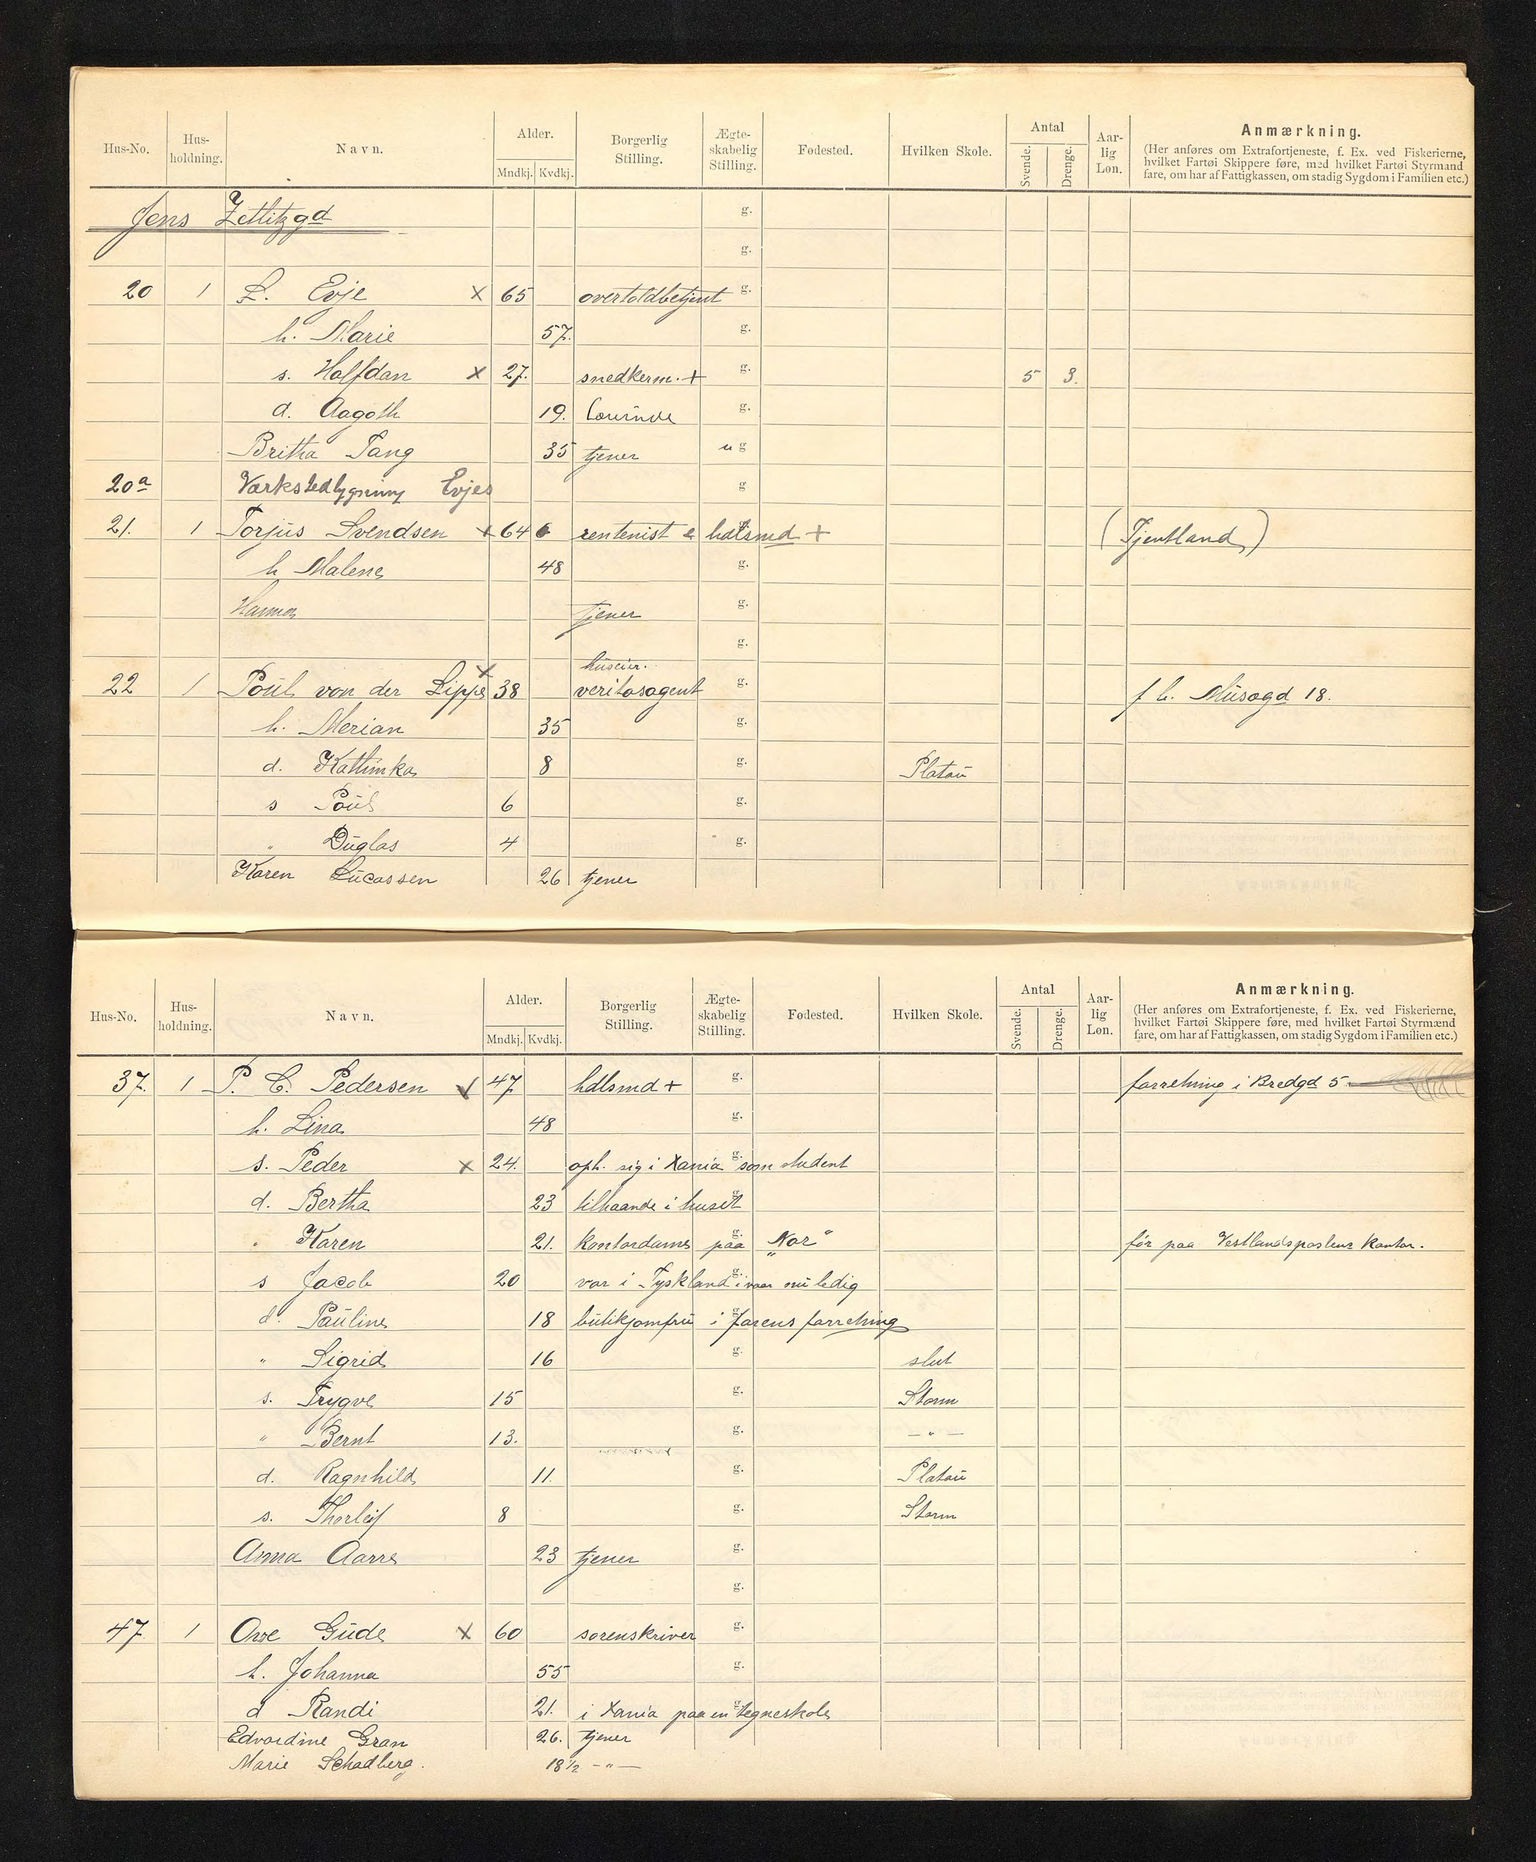 Hus-No. Hus-holdning. Navn. Alder. Mndkj. Kvdkj. Borgerlig Stilling. Ægte-skabelig Stilling. Fødested. Hvilken Skole. Antal Svende. Drenge. Aar-lig Løn. Anmærkning.
(Her anføres om Extrafortjeneste, f. Ex. ved Fiskerierne,
hvilket Fartøi Skippere føre, med hvilket Fartøi Styrmand
fare, om har af Fattigkassen, om stadig Sygdom i Familien etc.)
Jens Zetlitzgd g.
g.
20 1 L. Evje x 65 overtoldbetjent g.
h. Marie 57. g.
s. Halfdan x 27. snedkerm. + g. 5 3.
d. Aagoth 19. Lærinde g.
Britha Tang 35 tjener u g
20a Værkstedbygning Evjes g
21. 1 Torjus Svendsen x 64 rentenist & hdlsmd + g. (Tjentland)
h Malene 48 g.
Hanna tjener g.
g.
huseier.
22 1 Poul von der Lippe x 38 veritasagent g. f b. Musægd 18.
h. Merian 35 g.
d. Kathinka 8 g. Platou
s Poul 6 g.
" Duglas 4 g.
Karen Lucassen 26 tjener
Hus-No. Hus-holdning. Navn. Alder. Mndkj. Kvdkj. Borgerlig Stilling. Ægte-skabelig Stilling. Fødested. Hvilken Skole. Antal Svende. Drenge. Aar-lig Løn. Anmærkning.
(Her anføres om Extrafortjeneste, f. Ex. ved Fiskerierne,
hvilket Fartøi Skippere føre, med hvilket Fartøi Styrmænd
fare, om har af Fattigkassen, om stadig Sygdom i Familien etc.)
37. 1 P. C. Pedersen x 47 hdlsmd + g. forretning i Bredgd 5
h. Lina 48 g.
s. Peder x 24. oph. sig i Xania som student g.
d. Bertha 23 tilhaande i huset g
" Karen 21. kontordame paa "Nor" g. før paa Vestlandspostens kontor.
s Jacob 20 var i Tyskland i vaar nu ledig g.
d. Pauline 18 butikjomfru i farens forretning g
" Sigrid 16 g. slut
s. Trygve 15 g. Storm
" Bernt 13. g. — " —
d. Ragnhild 11. g. Platou
s. Thorleif 8 g. Storm
Anna Aarre 23 tjener g.
g.
47. 1 Owe Gude x 60 sorenskriver g.
h. Johanna 55 g.
d Randi 21. i Xania paa en tegneskole g
Edvardine Gran 26. tjener
Marie Schadberg. 18 1/2 — " —